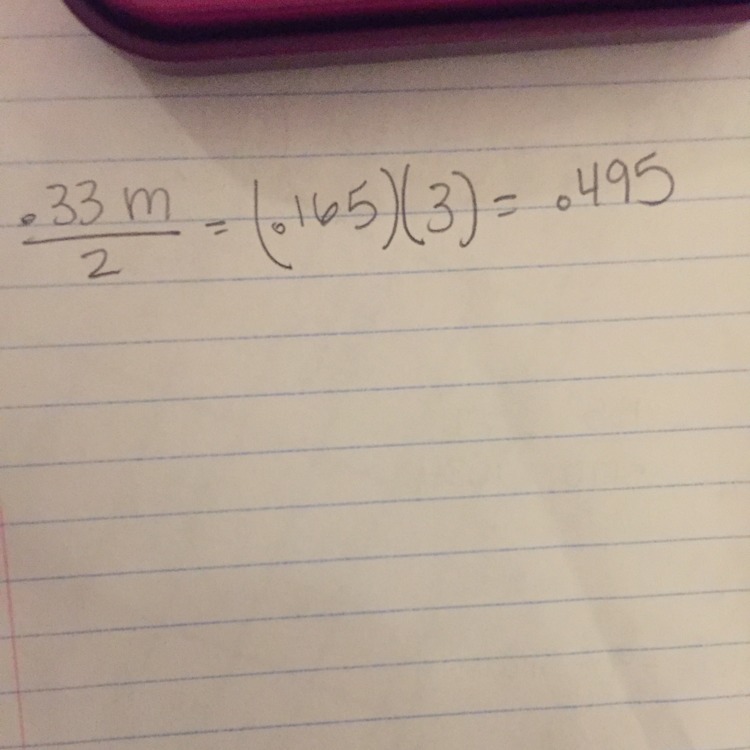 .33 m / 2 = (.165)(3) = .495